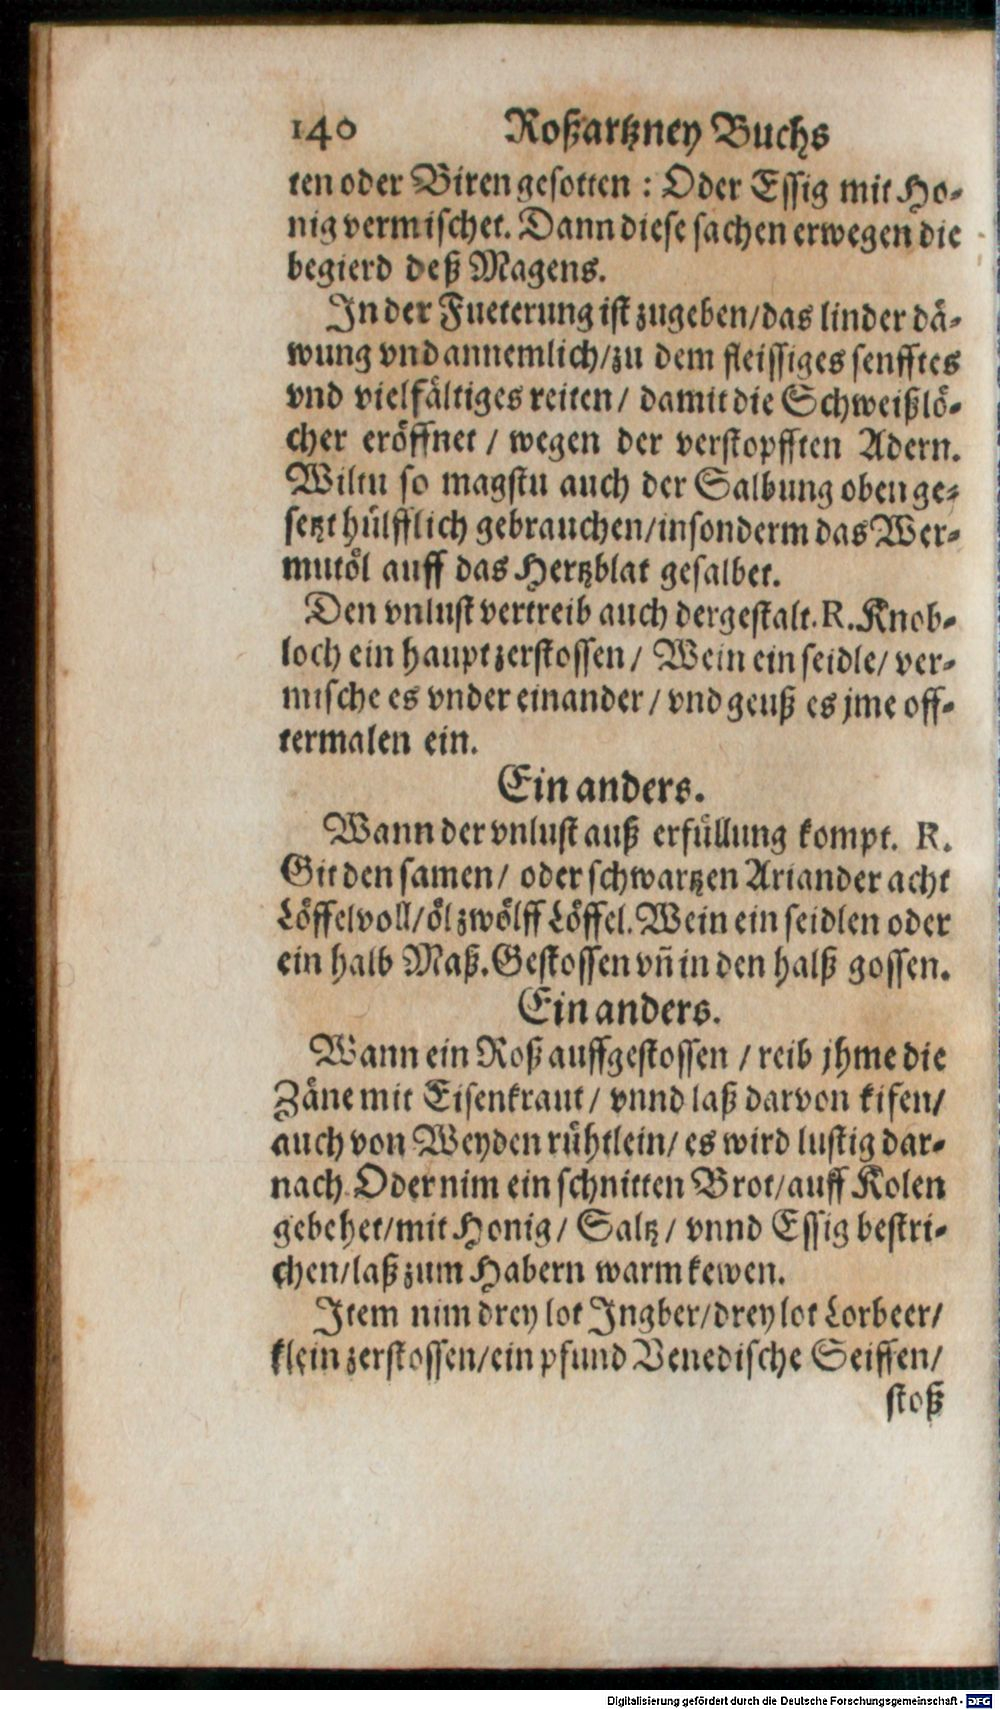 140 Roßartzney Buchs
ten oder Biren gesotten : Oder Essig mit Ho-
nig vermischet. Dann diese sachen erwegen die
begierd deß Magens.
In der Fueterung ist zugeben/das linder dä-
wung vnd annemlich/zu dem fleissiges senfftes
vnd vielfältiges reiten / damit die Schweißlö-
cher eröffnet / wegen der verstopfften Adern.
Wiltu so magstu auch der Salbung oben ge-
setzt hülfflich gebrauchen/insonderm das Wer-
mutöl auff das Hertzblat gesalbet.
Den vnlust vertreib auch dergestalt. R. Knob-
loch ein haupt zerstossen / Wein ein seidle/ ver-
mische es vnder einander / vnd geuß es jme off-
termalen ein.
Ein anders.
Wann der vnlust auß erfüllung kompt. R.
Git den samen / oder schwartzen Ariander acht
Löffel voll/öl zwölff Löffel. Wein ein seidlen oder
ein halb Maß. Gestossen vñ in den halß gossen.
Ein anders.
Wann ein Roß auffgestossen / reib jhme die
Zäne mit Eisenkraut / vnnd laß darvon kifen/
auch von Weyden rühtlein/ es wird lustig dar-
nach. Oder nim ein schnitten Brot/auff Kolen
gebehet/mit Honig / Saltz / vnnd Essig bestri-
chen/laß zum Habern warm kewen.
Item nim drey lot Ingber/drey lot Lorbeer/
klein zerstossen/ein pfund Venedische Seiffen/
stoß
Digitalisierung gefördert durch die Deutsche Forschungsgemeinschaft - DFG